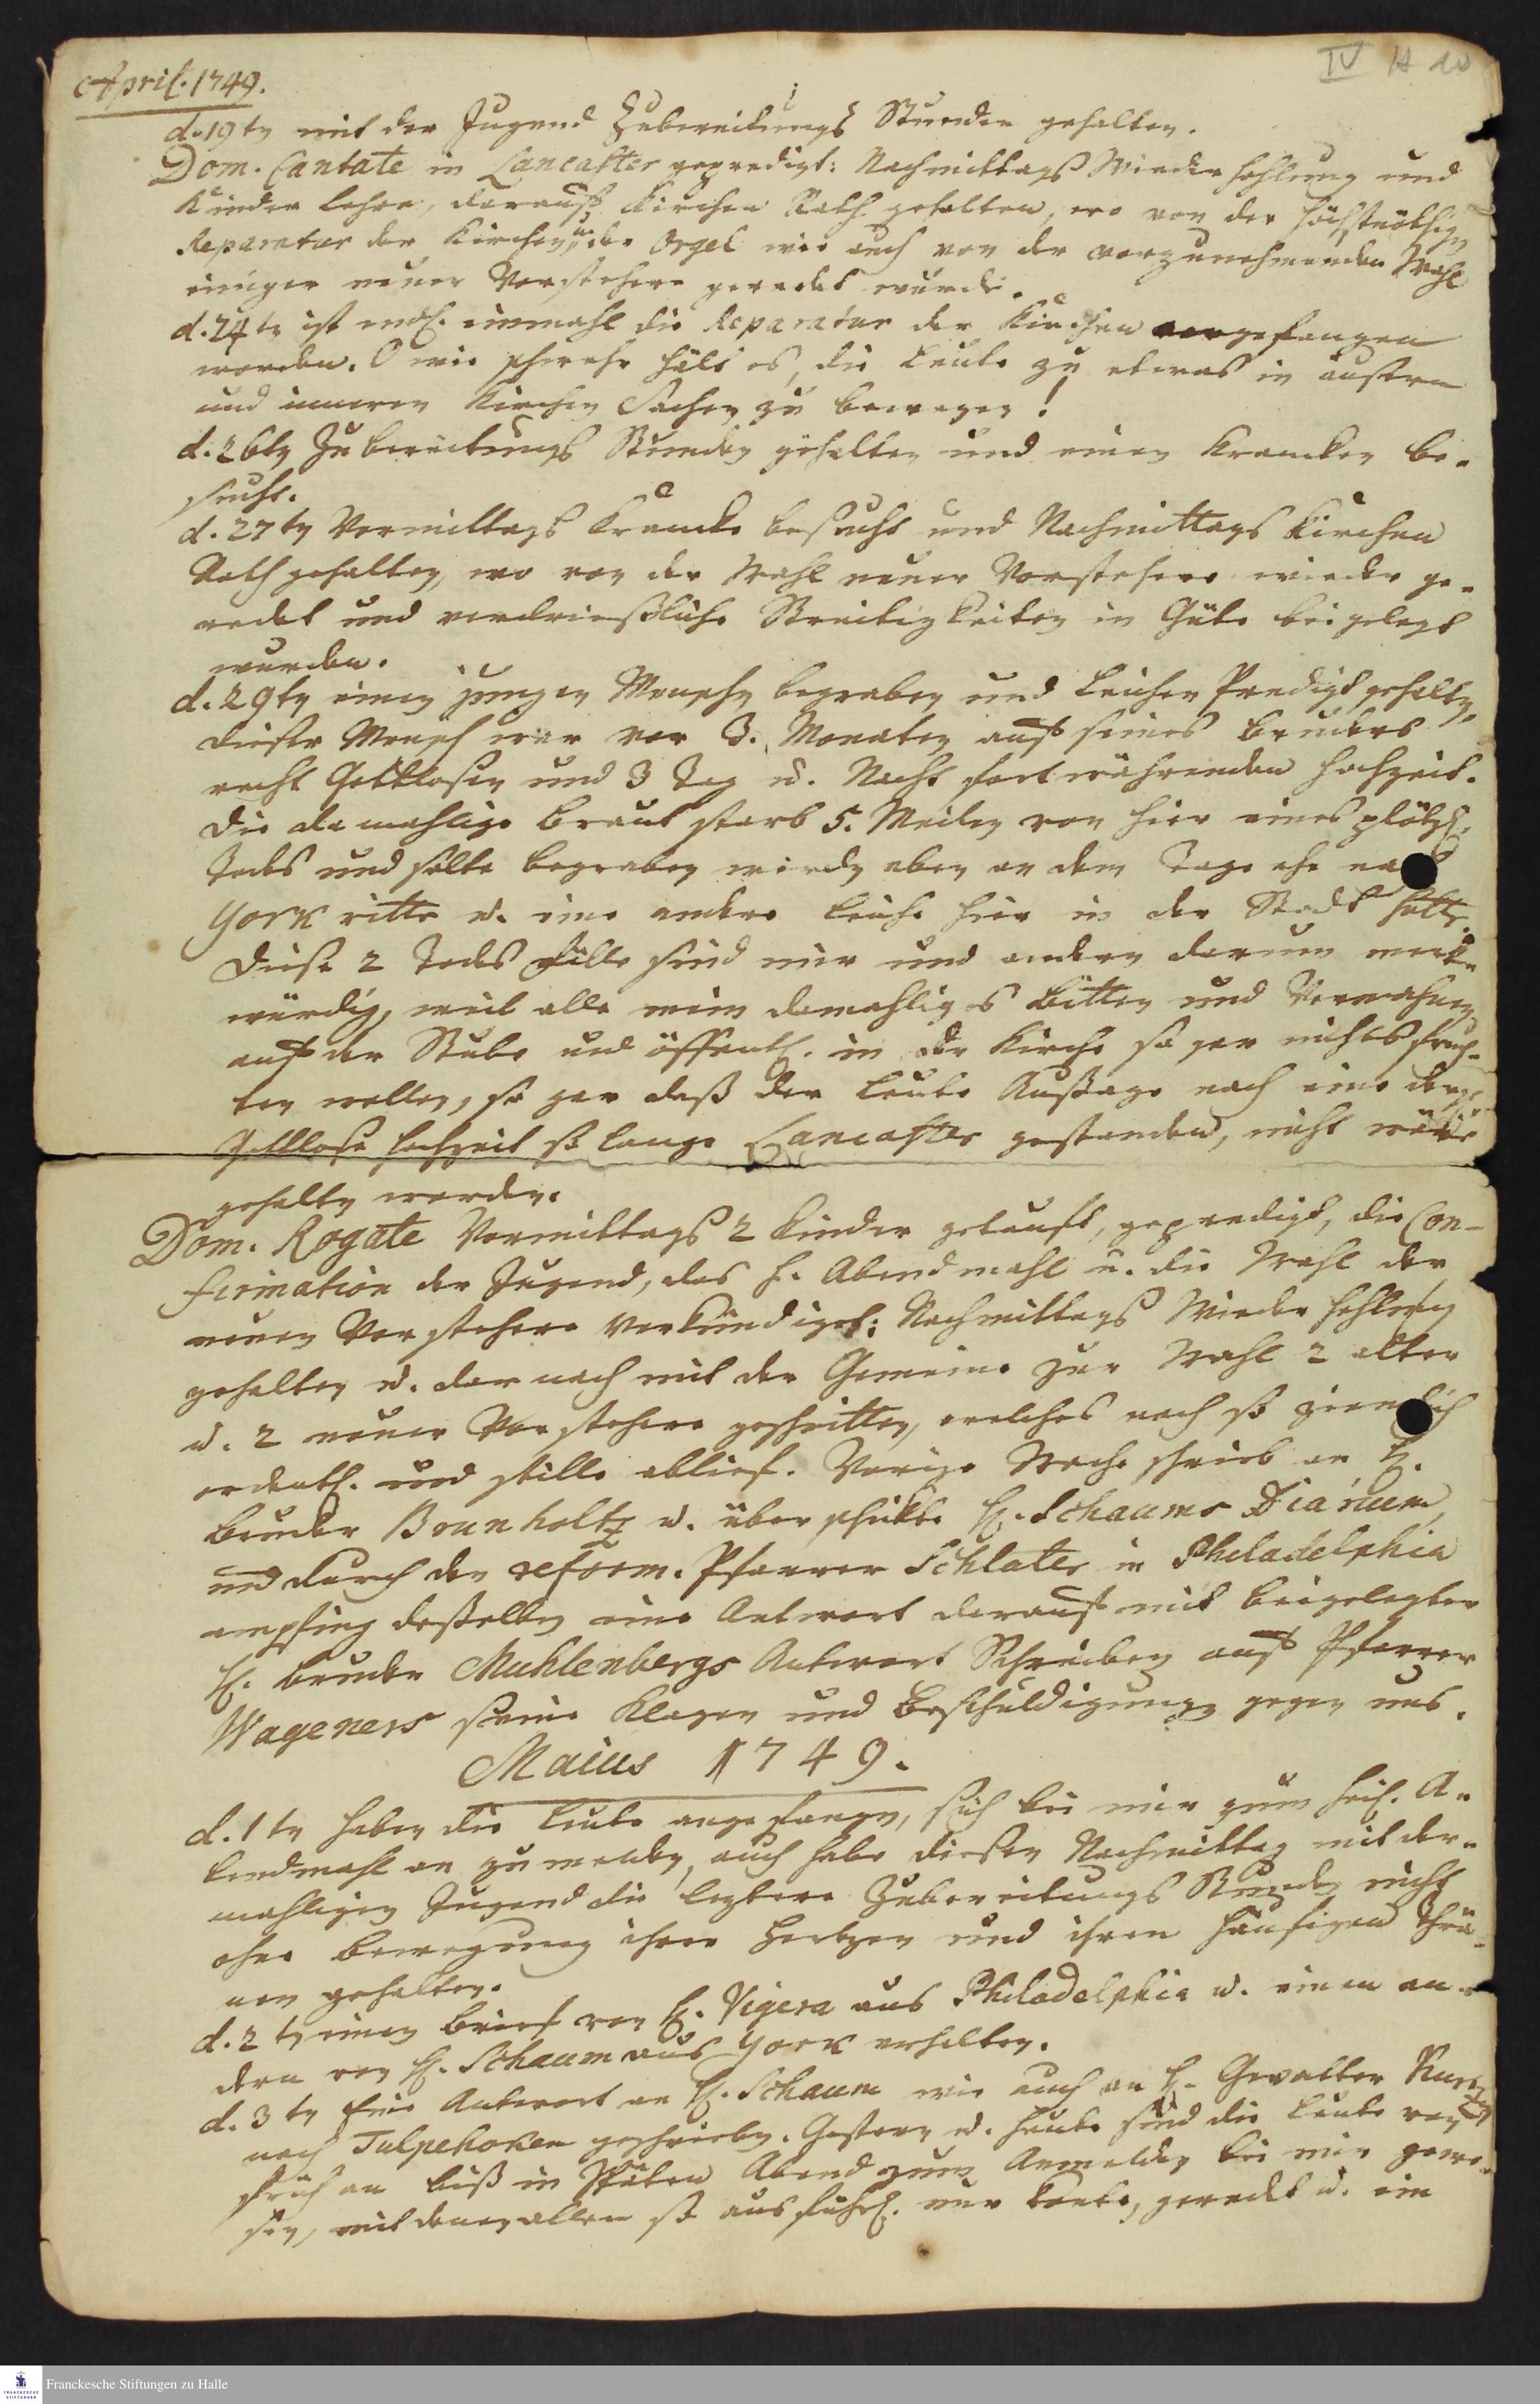 IV H 10
April. 1749.
d. 19tn mit der Jugend Zubereitungs Stunden gehalten.
Dom. Cantate in Lancaster gepredigt: Nachmittags Wiederhohlung und
Kinder Lehre, darauf Kirchen Rath gehalten, wo von der höchstnöthign
Reparatur der Kirchen, u. der Orgel wie auch von der vorzunehmenden Wahl
einiger neuer Vorstehere geredet wurde.
d. 24tn ist endl. einmahl die Reparatur der Kirchen angefangen
worden. O wie schwehr hält es, die Leute zu etwas in äussern
und inneren Kirchen Sachen zu bewegen!
d. 26tn Zubereitungs Stunden gehalten und einen Krancken be-
sucht.
d. 27tn Vormittags Krancke besucht und Nachmittags Kirchen
Rath gehalten, wo von der Wahl neuer Vorstehere wieder ge-
redet und verdriessliche Streitigkeiten in Güte beigelegt
wurden.
d. 29tn einen jungen Menschn begraben und Leichen Predigt gehaltn,
dieser Mensch war vor 3. Monaten auf seines Bruders
recht Gottlosen und 3 Tag u. Nacht fortwährenden Hochzeit.
Die damahlige Braut starb 5. Meilen von hier eines plötzl.
Todes und solte begraben werdn eben an dem Tage ehe nach
York ritte u. eine andere Leiche hier in der Stadt hatte.
Diese 2 Todes Fälle sind mir und andern darum merk-
würdig, weil alle mein damahliges Bitten und Vermahnen
auf der Stube und öffentl. in der Kirche so gar nichts fruch-
ten wollen, so gar daß der Leute Aussage nach eine derge
Gottlose Hochzeit so lange Lancaster gestanden, nicht wäre
gehaltn worden.
Dom. Rogate Vormittags 2 Kinder getauft, gepredigt, die Con-
firmation der Jugend, das H. Abendmahl u. die Wahl der
neuen Vorstehere verkündiget: Nachmittags Wiederhohlung
gehalten u. darnach mit der Gemeine zur Wahl 2 alter
u. 2 neuer Vorstehere geschritten, welches noch so ziemlich
ordentl. und stille ablief. Vorige Woche schrieb an H.
Bruder Brunholtz u. überschickte H. Schaums Diarium,
und durch den reform. Pfarrer Schlater in Philadelphia
empfing desselben eine Antwort darauf mit beigelegter
H. Bruder Muhlenbergs Antwort Schreiben auf Pfarrer
Wageners seine Klagen und Beschuldigungn gegen uns.
Maius 1749.
d. 1tn haben die Leute angefangn, sich bei mir zum heil. A-
bendmahl an zu melden, auch habe diesen Nachmittag mit der-
mahligen Jugend die leztere Zubereitungs Stunden nicht
ohne Bewegung ihrer Hertzen und ihren häufigen Thrä-
nen gehalten.
d. 2tn einen Brief von H. Vigera aus Philadelphia u. einem an-
dern von H. Schaum aus York erhalten.
d. 3tn Eine Antwort an H. Schaum wie auch an H. Gevatter Kurtz
nach Tulpehoken geschriebn. Gestern u. heute sind die Leute von
früh an biß in späten Abend zum Anmelden bei mir gewe-
sen, mit denen allen so ausführl. nur konte, geredet u. ein
Franckesche Stiftungen zu Halle